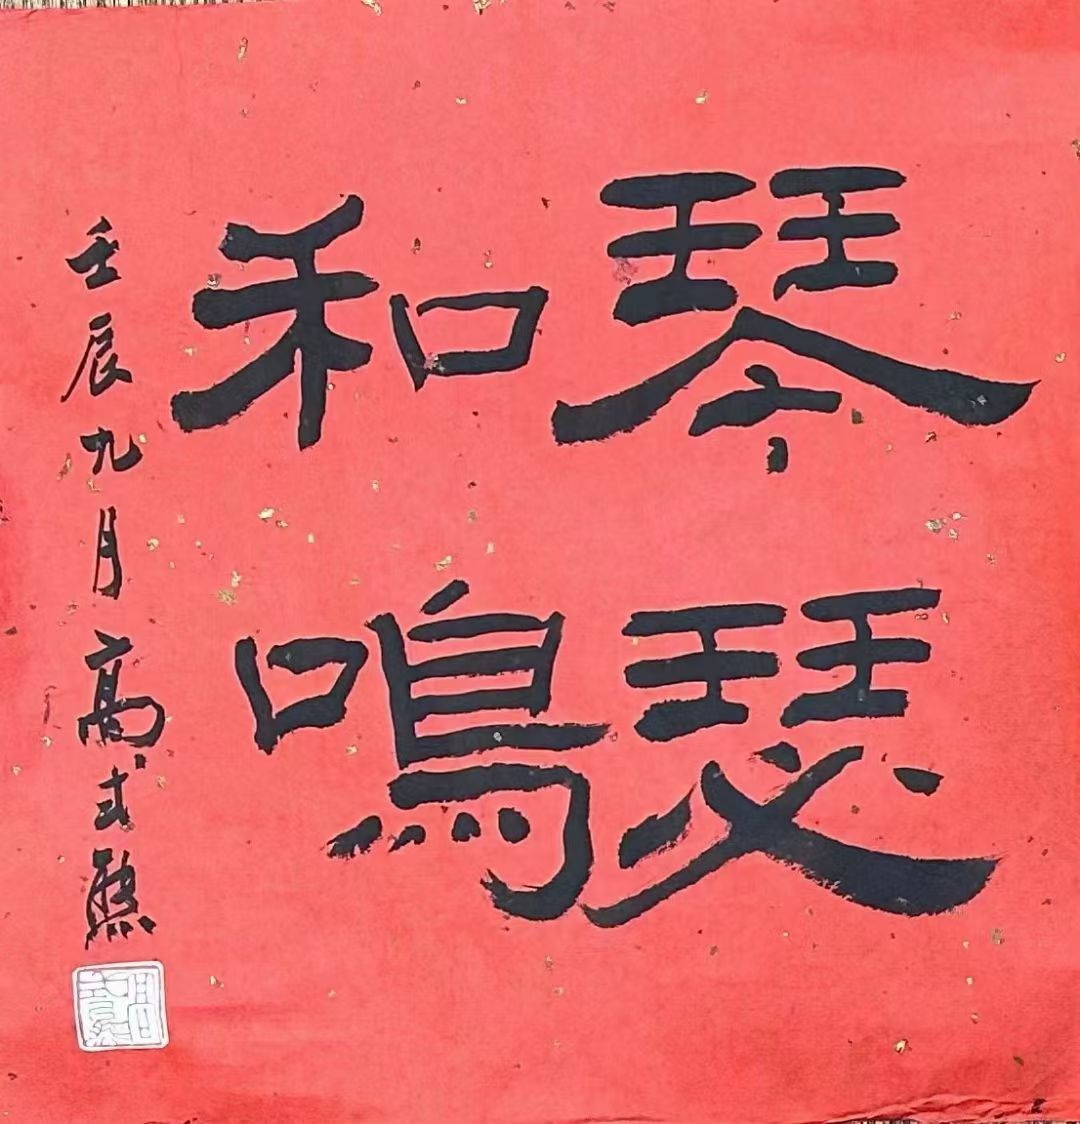 琴瑟
和鳴
壬辰九月高式熊